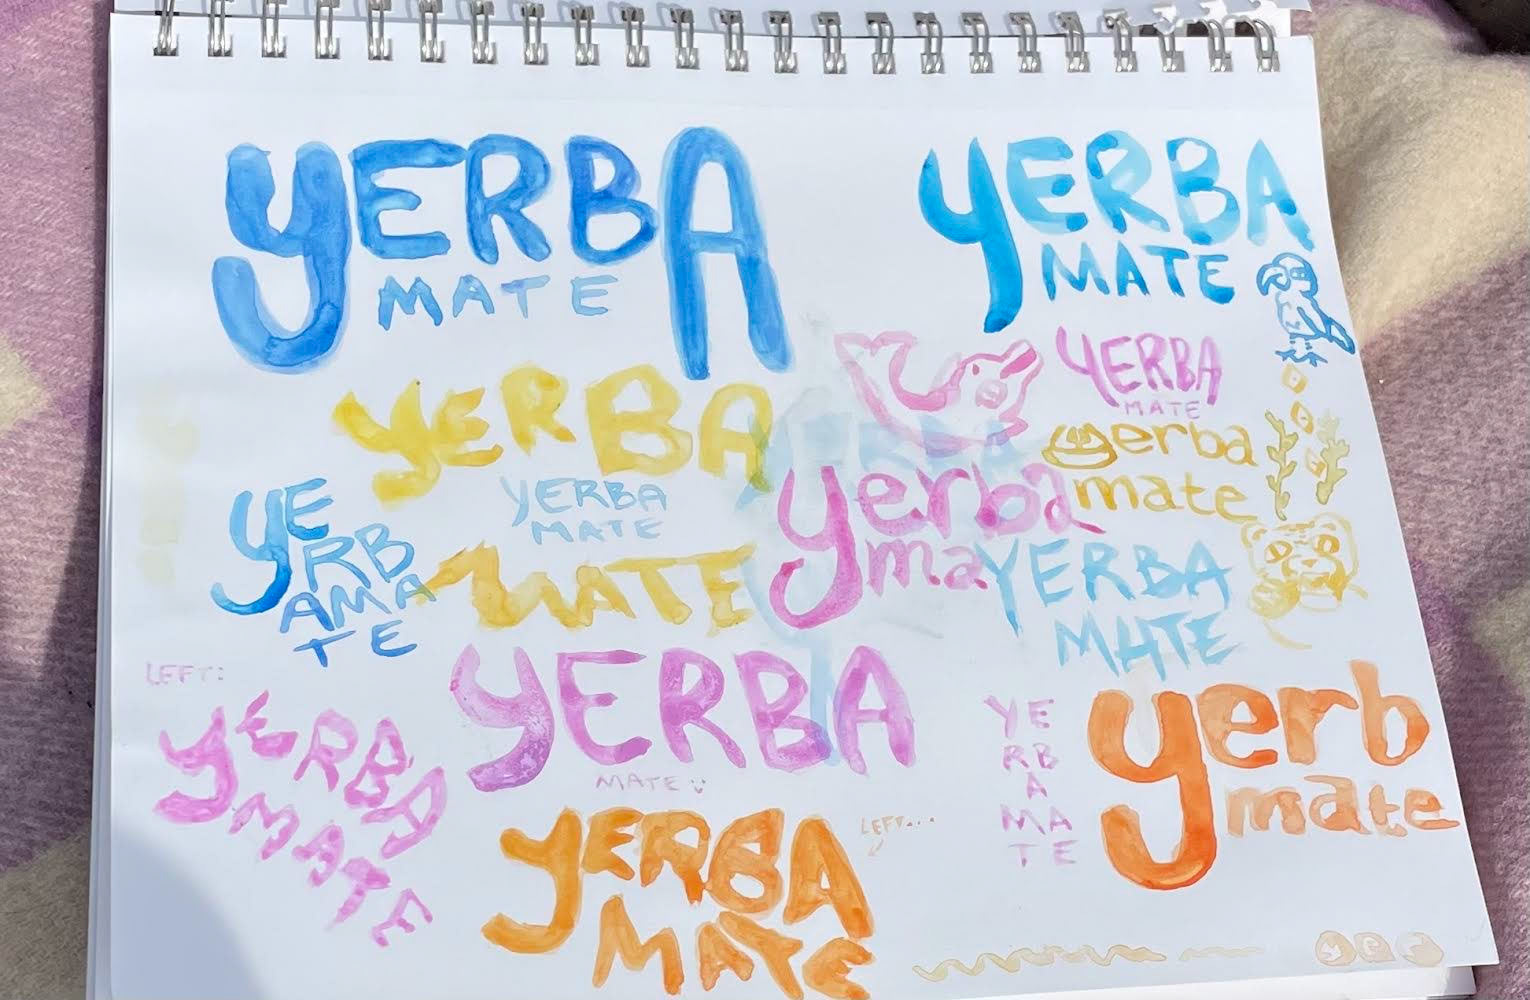 YERBA
MATE
YERBA
MATE
YERBA
MATE
YERBA
MATE
YERBA
MATE
yerba
mate
yerba
ma
YE
RB
AMA
TE
YERBA
MATE
YERBA
MATE
LEFT:
YERBA
MATE
YERBA
MATE :
YE
RB
A
MA
TE
yerb
mate
YERBA
MATE
LEFT...